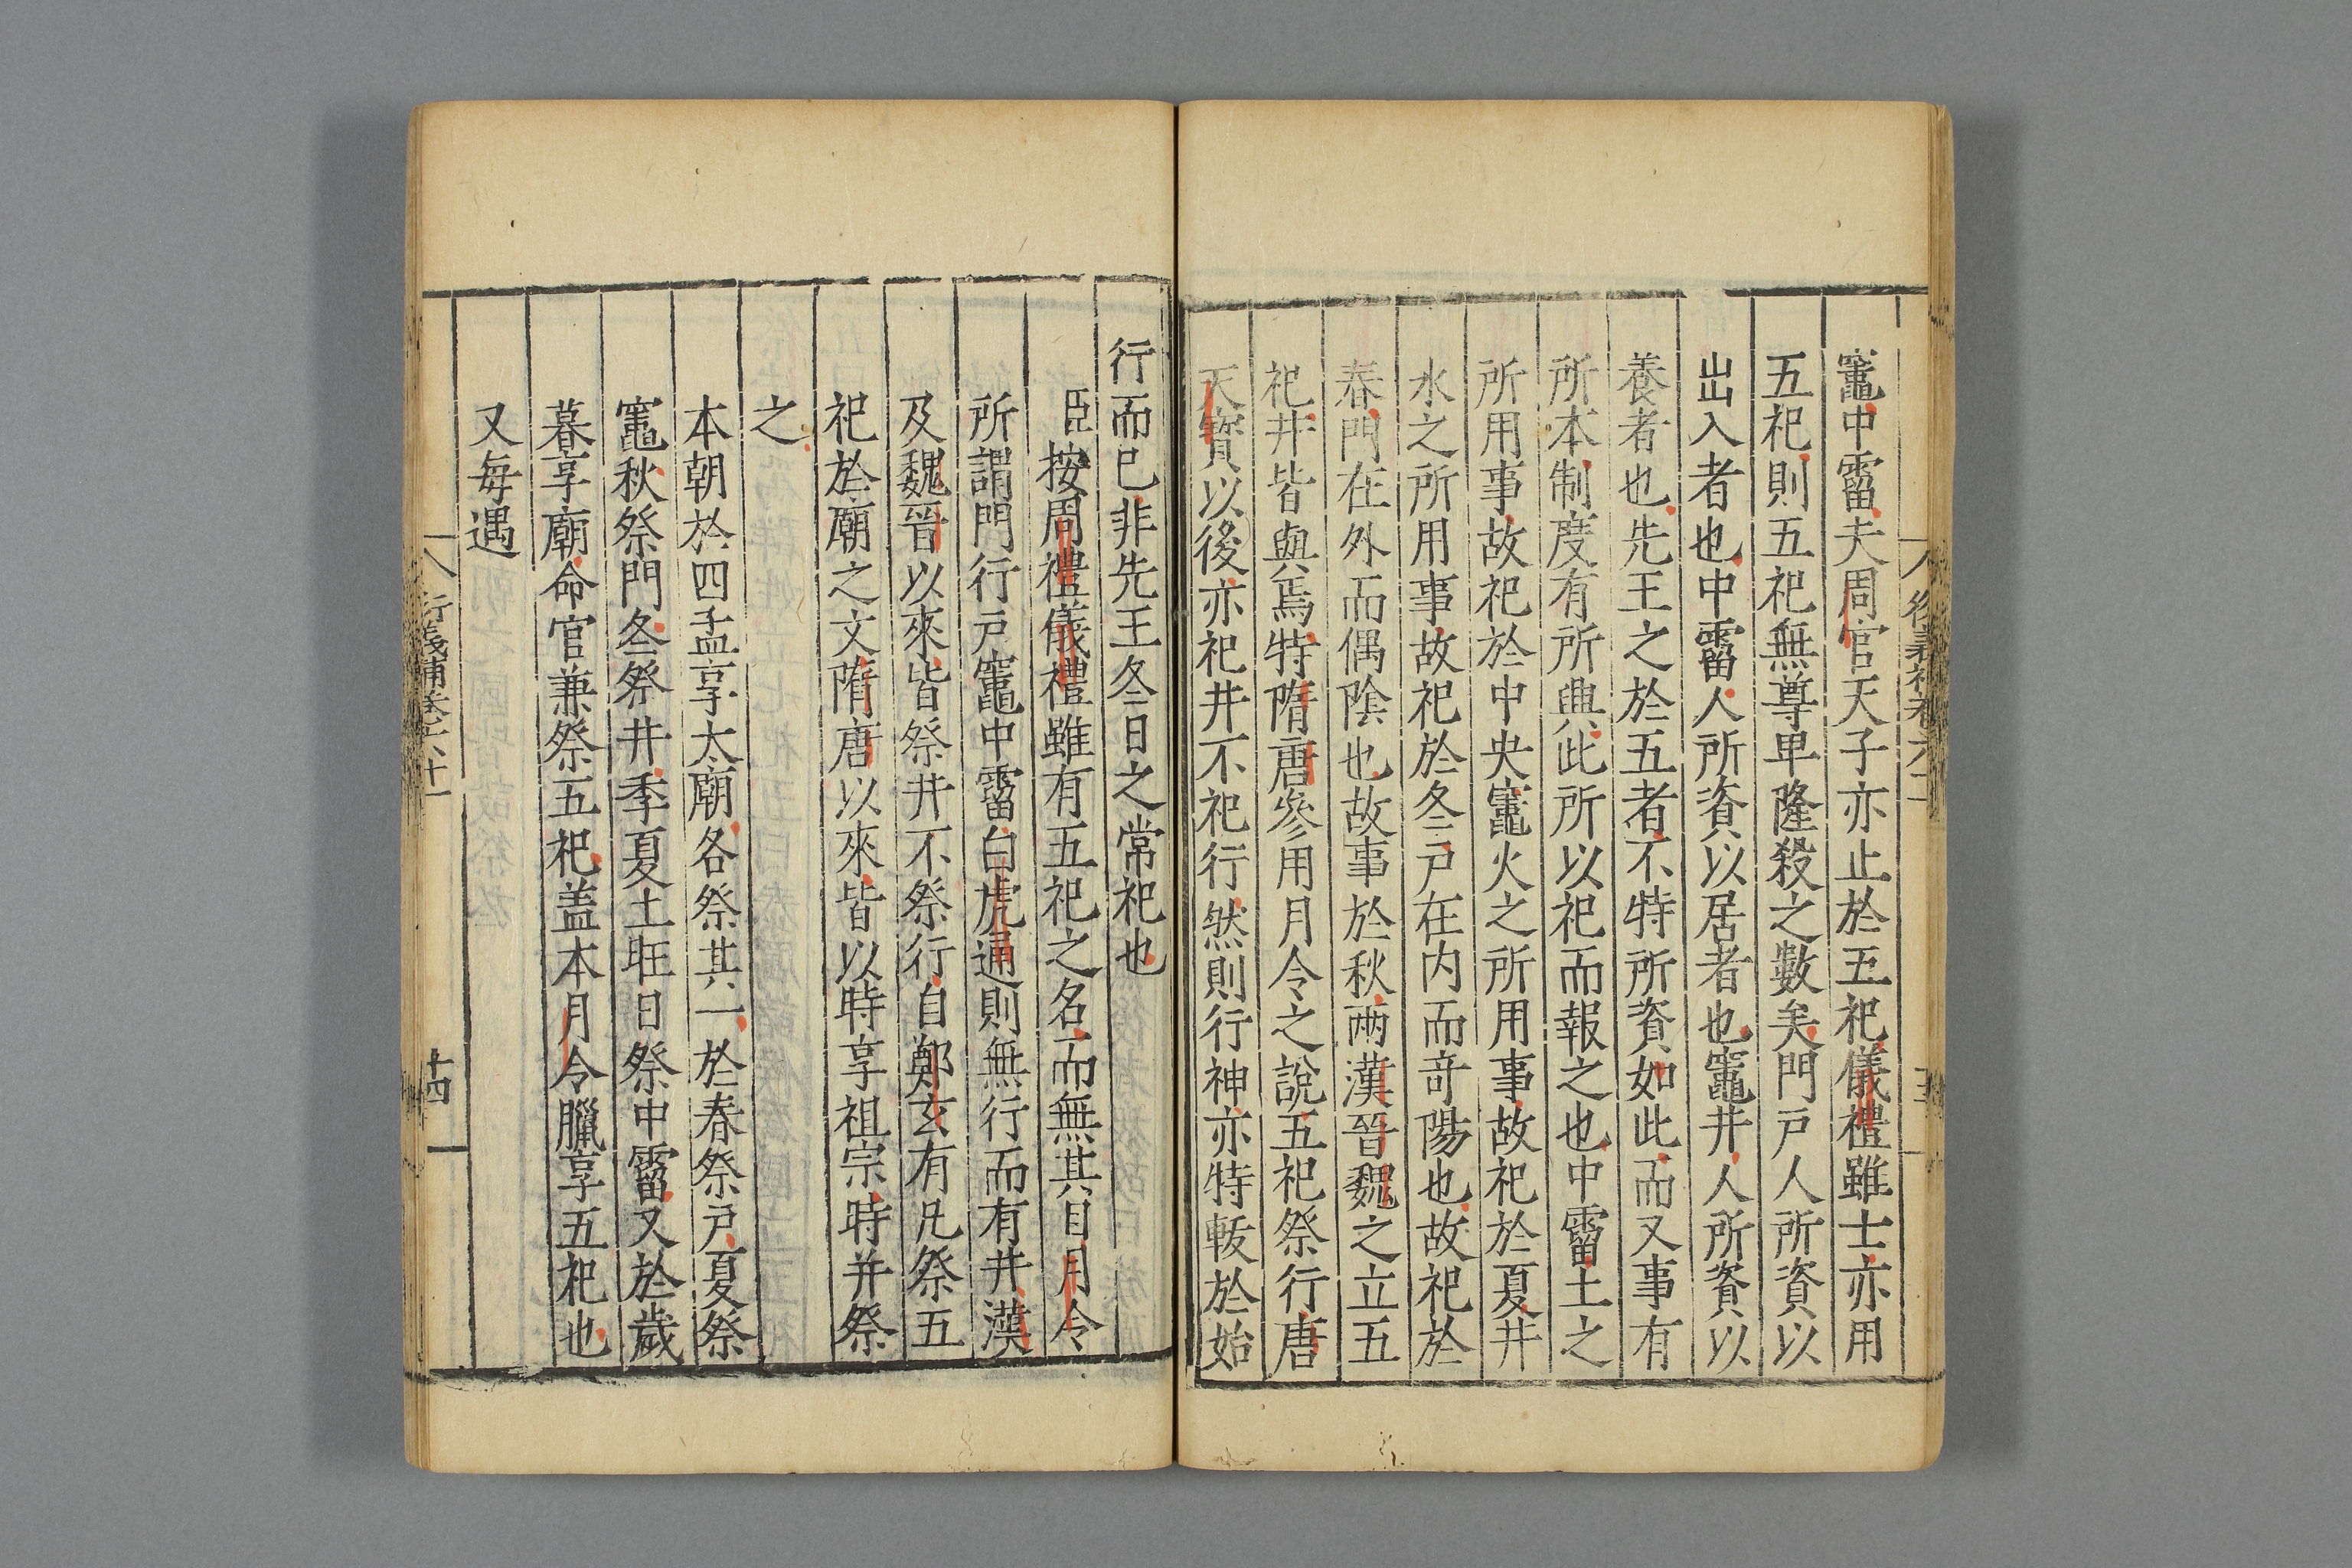 竈中霤夫周官天子亦止於五祀儀禮雖士亦用
五祀則五祀無尊卑隆殺之數矣門戶人所資以
出入者也中霤人所資以居者也竈井人所資以
養者也先王之於五者不特所資如此而又事有
所本制度有所興此所以祀而報之也中霤土之
所用事故祀於中央竈火之所用事故祀於夏井
水之所用事故祀於冬戶在内而竒陽也故祀於
春門在外而偶陰也故事於秋兩漢晉魏之立五
祀井皆與焉特隋唐參用月令之說五祀祭行唐
天寶以後亦祀井不祀行然則行神亦特軷於始
行而已非先王冬日之常祀也
臣按周禮儀禮雖有五祀之名而無其目月令
所謂門行戶竈中霤白虎通則無行而有井漢
及魏晉以來皆祭井不祭行自鄭玄有凡祭五
祀於廟之文隋唐以來皆以時享祖宗時并祭
之
本朝於四孟享太廟各祭其一於春祭戶夏祭
竈秋祭門冬祭井季夏土旺日祭中霤又於歲
暮享廟命官兼祭五祀盖本月令臘享五祀也
又毎遇
衍義補卷六十一
十四